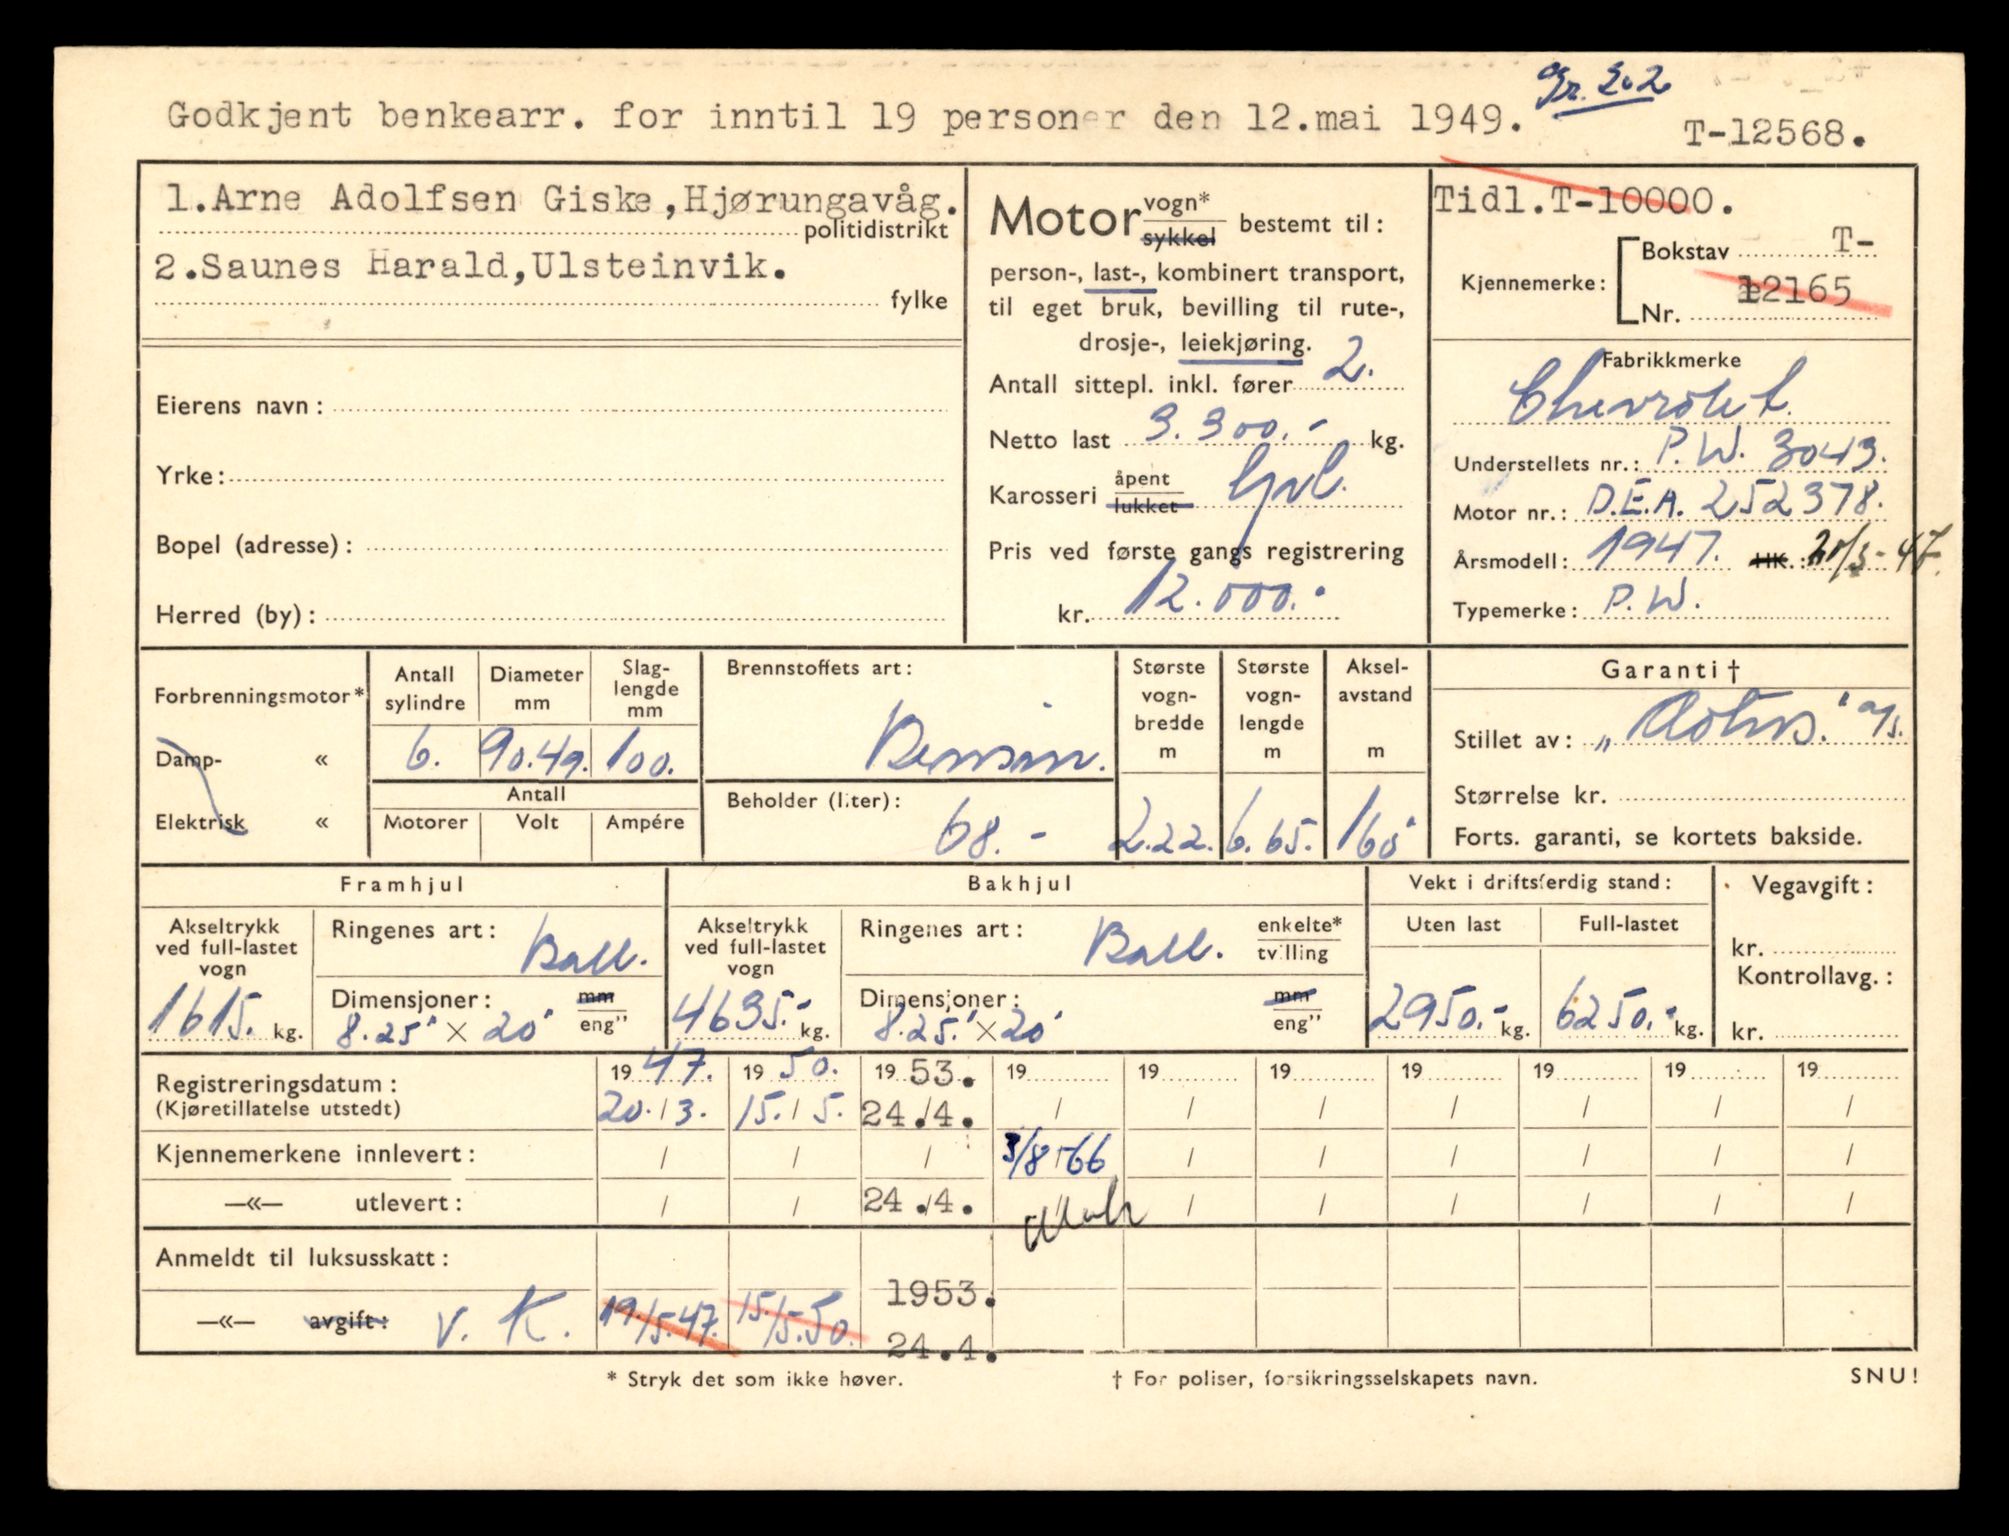 Gr. 202
Godkjent benkearr. for inntil 19 personer den 12.mai 1949.
T-12568.
1.Arne Adolfsen Giske,Hjørungavåg.
politidistrikt
2.Saunes Harald,Ulsteinvik.
fylke
Eierens navn:
Yrke:
Bopel (adresse):
Herred (by):
Motor vogn* sykkel bestemt til:
person-, last-, kombinert transport,
til eget bruk, bevilling til rute-,
drosje-, leiekjøring.
Antall sittepl. inkl. fører 2.
Netto last 3.300.- kg.
Karosseri åpent lukket
Pris ved første gangs registrering
kr. 12.000.-
Tidl.T-10000.
Kjennemerke: Bokstav T-
Nr. 12165
Fabrikkmerke
Chevrolet.
Understellets nr.: P.W. 3043.
Motor nr.: D.E.A. 252378.
Årsmodell: 1947. HK.: 20/3-47.
Typemerke: P.W.
Forbrenningsmotor*
Damp- «
Elektrisk «
Antall sylindre
6.
Diameter mm
90.49.
Slag-lengde mm
100.
Antall
Motorer Volt Ampére
Brennstoffets art:
Bensin.
Beholder (liter):
68.-
Største vogn-bredde m
2.22.
Største vogn-lengde m
6.65.
Aksel-avstand m
160"
Garanti †
Stillet av:
Størrelse kr.
Forts. garanti, se kortets bakside.
Framhjul
Akseltrykk ved full-lastet vogn
1615. kg.
Ringenes art: Ball.
Dimensjoner: mm eng"
8.25" × 20"
Bakhjul
Akseltrykk ved full-lastet vogn
4635.- kg.
Ringenes art: Ball. enkelte* tvilling
Dimensjoner: mm eng"
8.25." × 20"
Vekt i driftsferdig stand:
Uten last Full-lastet
2950.- kg. 6250.- kg.
Vegavgift:
kr.
Kontrollavg.:
kr.
Registreringsdatum: 1947. 1950. 1953. 19 19 19 19 19 19 19
(Kjøretillatelse utstedt) 20./3. 15./5. 24./4. / / / / / / /
Kjennemerkene innlevert: / / / 3/8-66 / / / / / /
—«— utlevert: / / 24./4. / / / / / / /
Anmeldt til luksusskatt:
—«— avgift: V. K. 19/5.47. 15/5.50. 1953. 24.4.
* Stryk det som ikke høver.
† For poliser, forsikringsselskapets navn.
SNU!